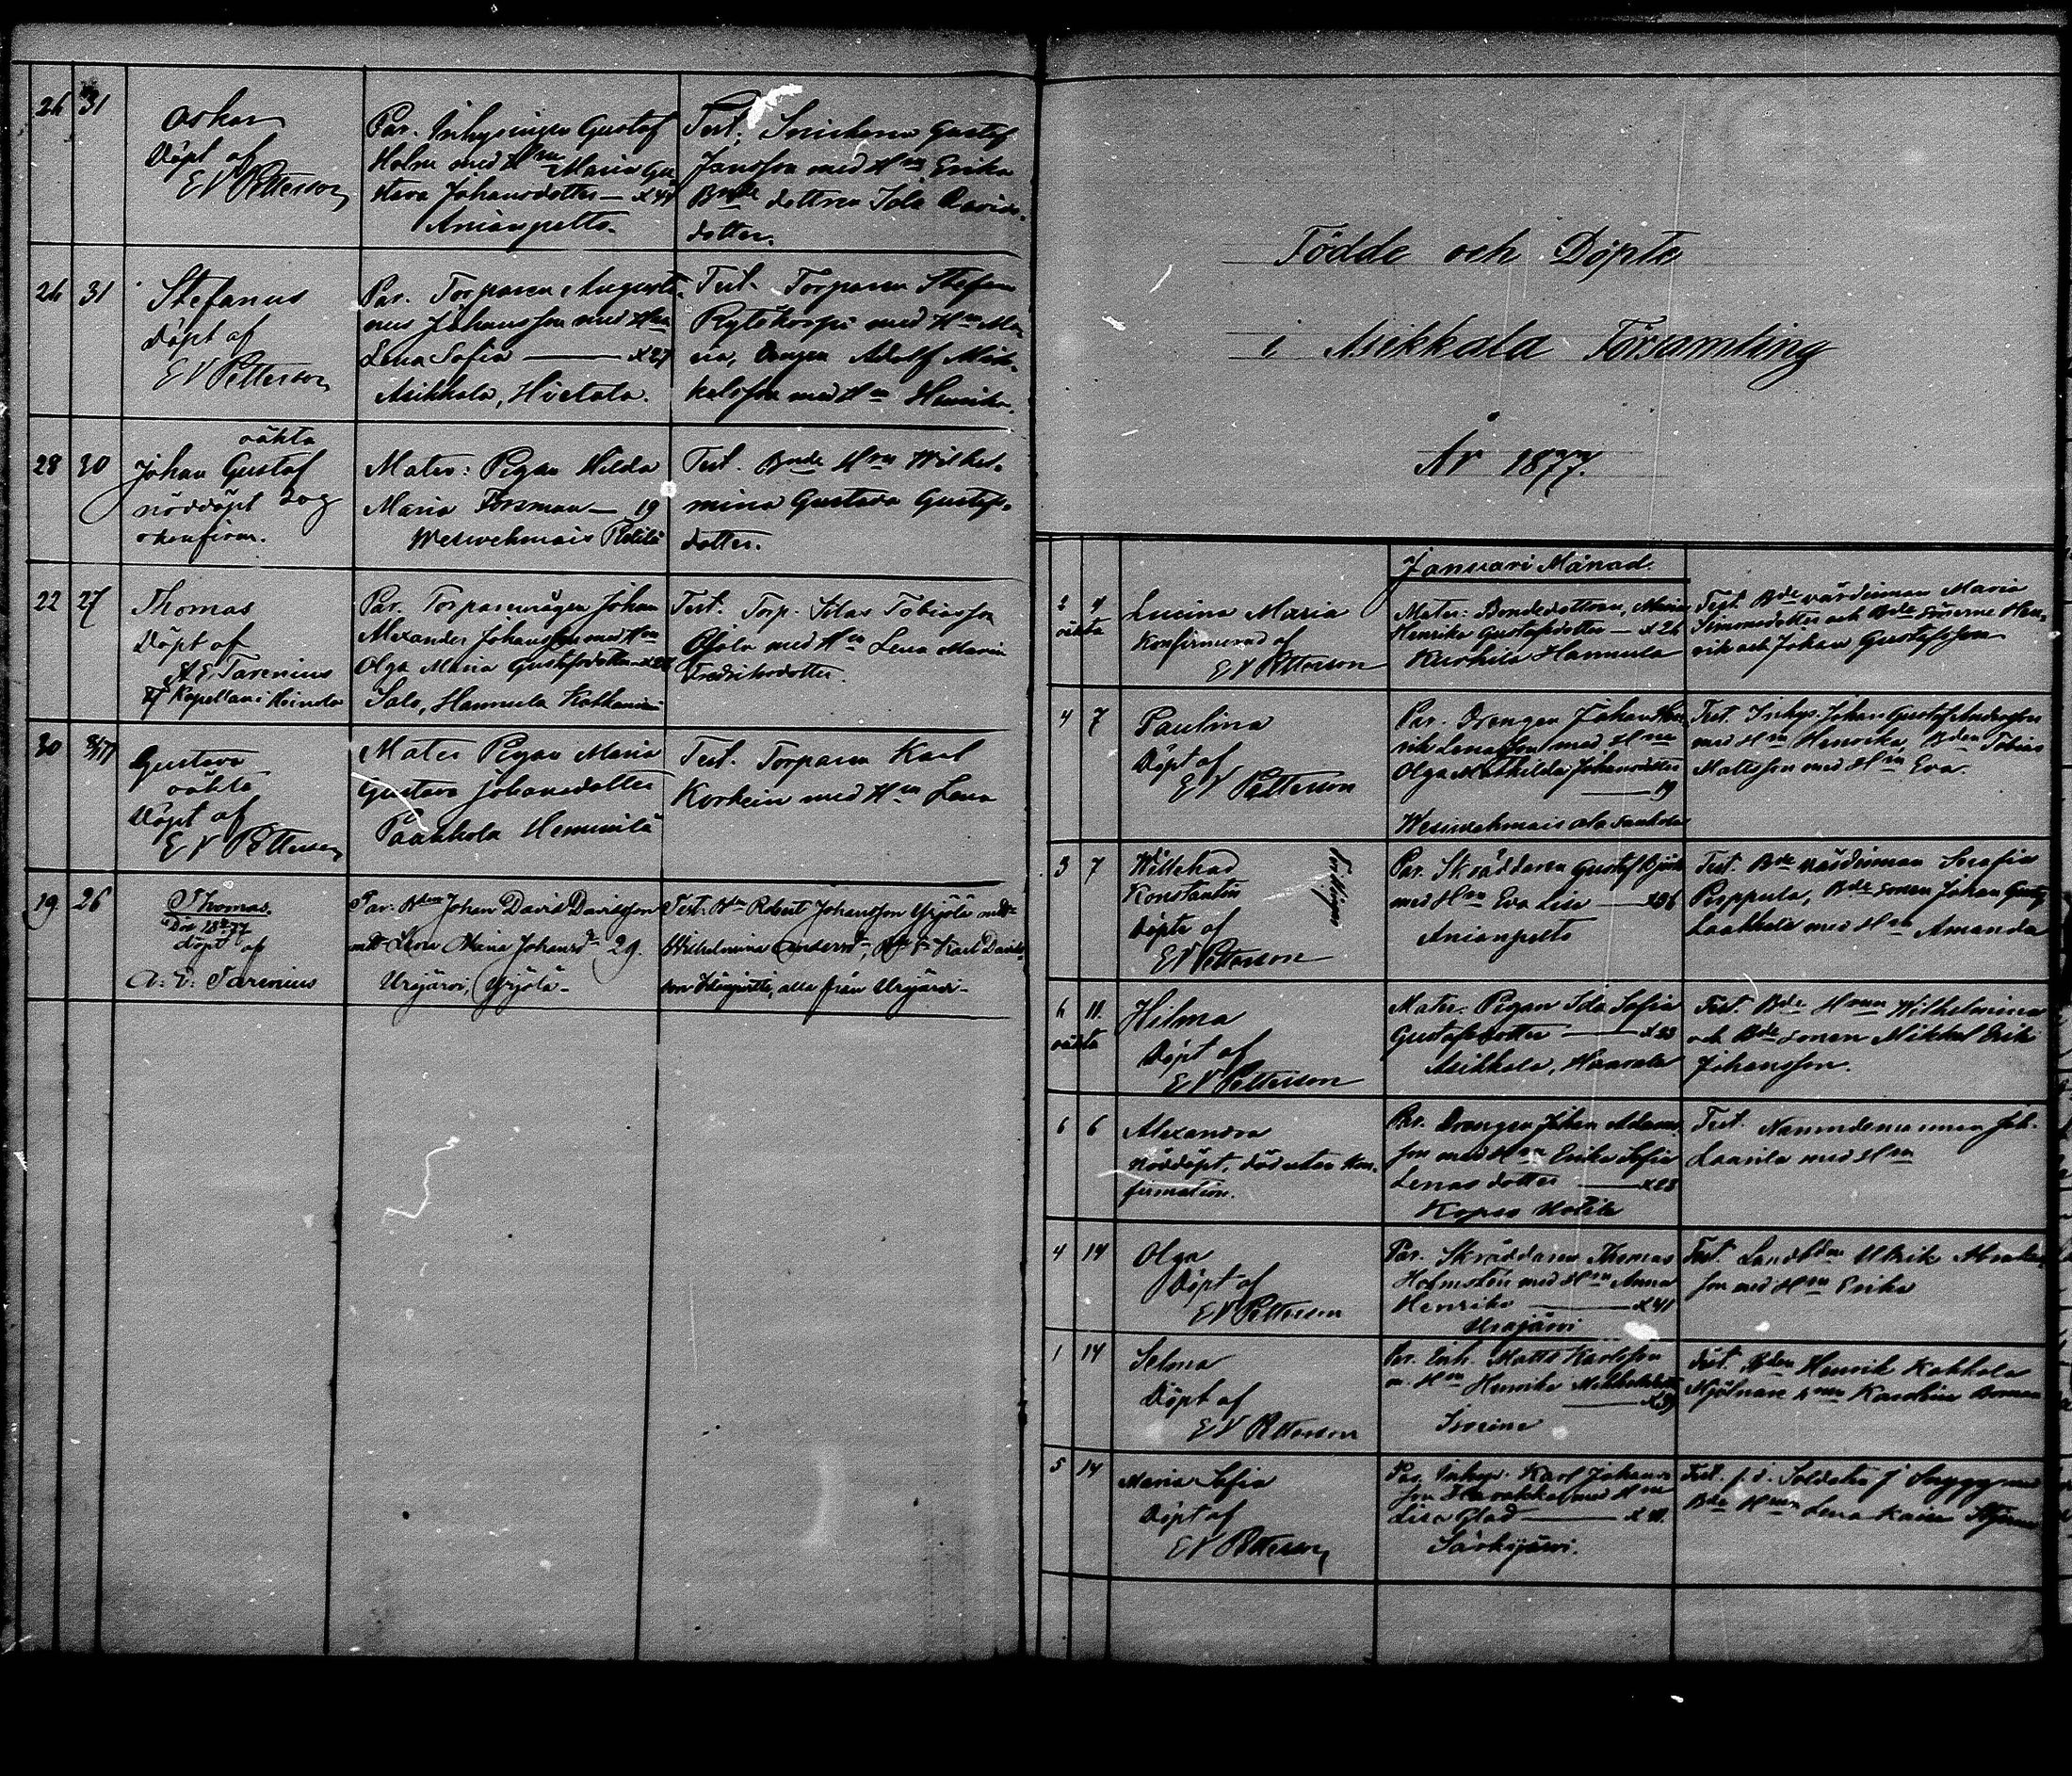 26 31 Oskar
Döpt af
E V Petterson
Par. Inhysingen Gustaf
Holm med Hru Maria Gu
stava Johansdotter — x 44
Anianpelto.
Test. Snickaren Gustaf
Jansson med Hru Erika
Bnde dottren Ida Davids-
dotter.
26 31 Stefanus
Döpt af
E V Petterson
Par. Torparen Augusti-
nus Johansson med Hru
Lena Sofia — x 27
Asikkala, Hietala.
Test. Torparen Stefan
Rytökorpi med Hru Ma
ria, Drengen Adolf Mik-
kelsson med Hru Henrika.
28 30 oäkta
Johan Gustaf
nöddöpt dog
okonfirm.
Mater: Pigan Hilda
Maria Forsman — 19
Wesivehmais
Test. Bnde Hru Wilhel-
mina Gustava Gustafs-
dotter.
22 27 Thomas
Döpt af
A E Tarenius
Kapellan i Heinola
Par. Torparemågen Johan
Alexander Johansson med Hru
Olga Maria Gustafsdotter
Salo, Hannula
Test. Torp. Silas Tobiasson
Ojala med Hru Lena Maria
Fredriksdotter.
30 Gustava
oäkta
Döpt af
E V Petterson
Mater Pigan Maria
Gustava Johansdotter
Paakkola Hemmilä
Test. Torparen Karl
med Hru Lena
19 26 Thomas.
Döpt af
A. E. Tarenius
Par: Bden Johan David Davidsson
Maria Johansdr 29.
Urajärvi, Yrjölä
Test: Bdn Robert Johansson Yrjölä med
Wilhelmina Karl Davids-
son alla från Urajärvi
Födde och Döpte
i Asikkala Församling
År 1877.
Januari Månad.
2 4
oäkta
Lucina Maria
Konfirmerad af
E V Petterson
Mater: Bondedottren, Maria
Henrika Gustafsdotter — x 26
Kurhila Hannula
Test. Bde värdinnan Maria
Simonsdotter och Bde sönerne Hen-
rik och Johan Gustafsson
4 7 Paulina
Döpt af
E V Petterson
Par. Drengen Johan Hen
rik Lenasson med Hru
Olga Mathilda Johansdotter
— 19
Wesivehmais
Test. Inhys. Johan Gustaf Andersson
med Hru Henrika, Bden Tobias
Mattsson med Hru Eva.
3 7 Willehad
Konstantin
Döpte af
E V Petterson
Par. Skräddaren Gustaf Björk
med Hru Eva Lisa — x 36
Anianpelto
Test. Bde värdinnan Serafia
Peippula, Bde sonen Johan Gust.
Laakkola med Hru Amanda
6 11.
oäkta
Hilma
Döpt af
E V Petterson
Mater. Pigan Ida Sofia
Gustafsdotter — x 23
Asikkala,
Test. Bde Hrun Wilhelmina
och Bde sonen Mikkel Erik
Johansson.
6 6 Alexandra
Nöddöpt, död utan kon-
firmation.
Par. Drengen Johan Adams-
son med Hru Erika Sofia
Lenasdotter — x 28
Test. Nämndemannen Joh.
Laurila med Hru
4 14 Olga
Döpt af
E V Petterson
Par. Skräddaren Thomas
Holmstén med Hru Anna
Henrika — x 41
Urajärvi
Test. Landbden Ulrik Abraham
son med Hru Erika
1 14 Selma
Döpt af
E V Petterson
Par. Inh. Matts Karlsson
m. Hru Henrika
x 39
Test. Bden Henrik Kokkola
Mjölnare hrun Karolina
5 14 Maria Sofia
Döpt af
E V Petterson
Par. Inhys. Karl Johans
son med Hru
Lisa Glad
Särkijärvi.
Test. f.d. Soldaten J Snygg med
Bde Hrun Lena Kaisa